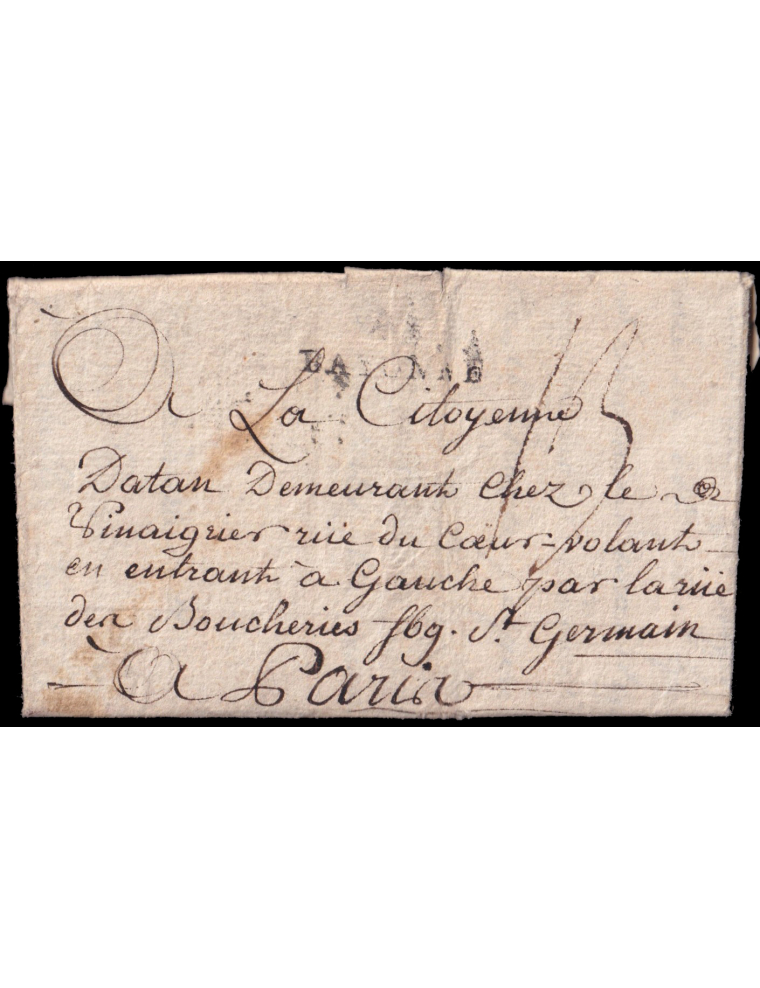 BAYONNE
13
A La Citoyenne
Datan Demeurant chez le
Vinaigrier rüe du Cœur-volant
en entrant à Gauche par la rüe
des Boucheries fbg. St Germain
A Paris